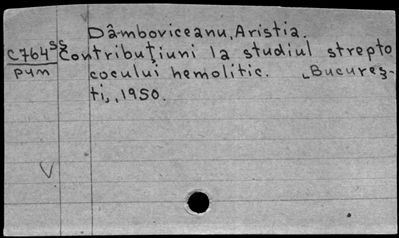 Dâmboviceanu, Aristia.
C764 ss Contribuţiuni la studiul strepto
pum cocului hemolitic. Bucureş-
ti, 1950.